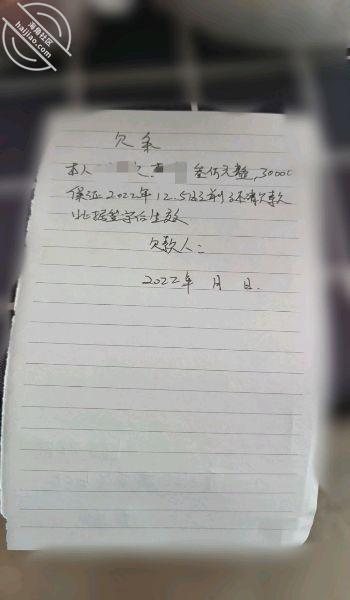 海角社区
haijiao.com
欠条
本人 欠 叁仟元整,3000
保证2022年12.5日前还清欠款
此据签字后生效
欠款人:
2022年 月 日.